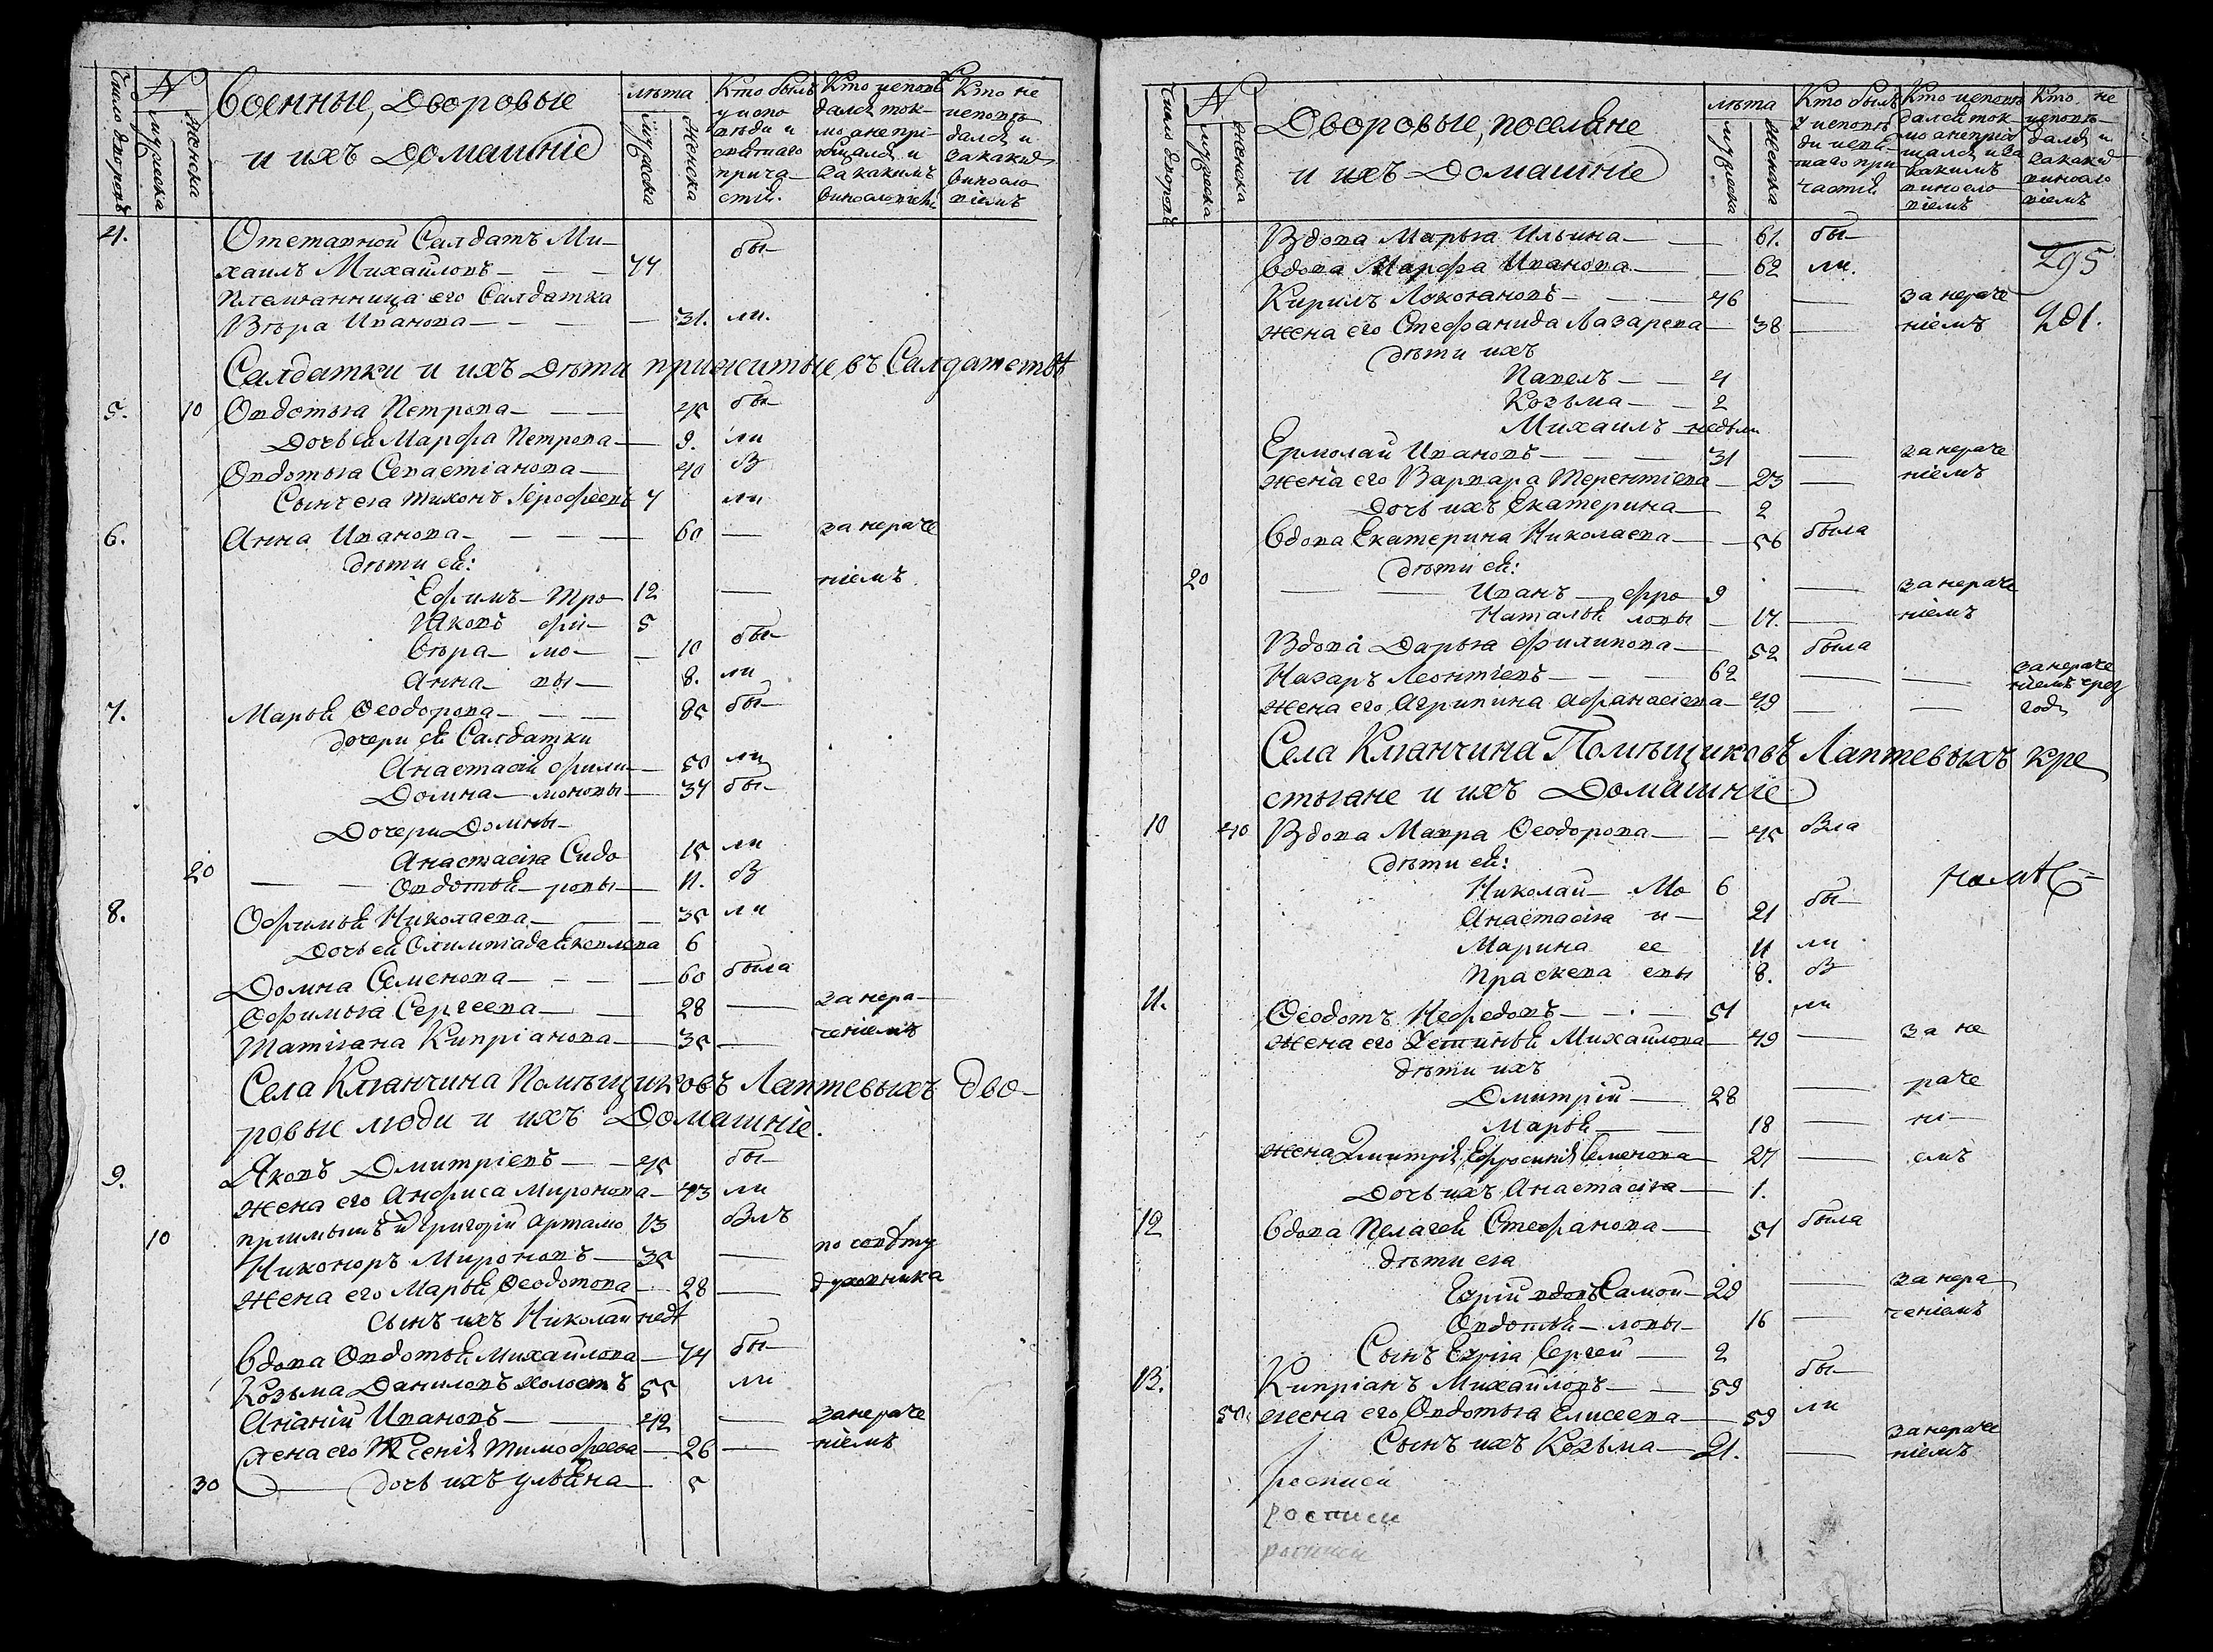 Число дворовъ
N
мужеска
женска
Военные, дворовые
и ихъ домашніе
лѣта
мужеска
женска
Кто былъ
у испо
вѣди и
святаго
прича
стія.
Кто исповѣ
дался ток-
мо а не прі
общался и
за какимъ
винословіемъ
Кто не
исповѣ
дался и
за какимъ
винсло
віемъ
4.
Отставной Салдатъ Ми-
хаилъ Михайловъ 44 бы-
Племянница его Салдатка
Вѣра Иванова 31. ли.
Салдатки и ихъ дѣти прижитые въ Салдатствѣ
5. 10 Овдотья Петрова 45 бы-
Дочь ея Марфа Петрова 9. ли
Овдотья Севастіанова 40 бы
Сынъ ея Тихонъ Іерофеевъ 7 ли
6. Анна Иванова 60 — за нераче
дѣти ея:
Ефимъ Тро 12 — ніемъ
Іаковъ фи 5
Вѣра мо 10 бы-
Анна вы 8. ли
7. Марья Ѳеодорова 85 бы-
дочери ея Салдатки
Анастасія Фили 50 ли
Домна моновы 37 бы-
Дочери Домны
Анастасія Сидо 15 ли
20 Овдотья ровы 11. бы
8. Офимья Николаева 35 ли
Дочь ея Олимпіада 6
Домна Семенова 60 была
Офимья Сергеева 28 — за нера-
Татіяна Кипріанова 35 — ченіемъ
Села Клянчина Помѣщиковъ Лаптевыхъ дво-
ровые люди и ихъ домашніе.
9. Яковъ Дмитріевъ 45 бы-
жена его Анфиса Миронова 43 ли
пріимышъ Григорій Артамо 13 былъ
10 Никоноръ Мироновъ 35 — по совѣту
жена его Марья Ѳеодотова 28 — духовника
Сынъ ихъ Николай недѣ
Вдова Овдотья Михайлова 74 бы-
Козьма Даниловъ холостъ 55 ли
Ананій Ивановъ 42 — за нераче
жена его Ксенія Тимофеева 26 — ніемъ
30 дочь ихъ Ульяна 5
Число дворовъ
N
мужеска
женска
Дворовые, поселяне
и ихъ домашніе
лѣта
мужеска
женска
Кто былъ
у исповѣ
ди и свя-
таго при
частія
Кто исповѣ
дался ток
мо а не пріоб
щался и за
какимъ
винсло
віемъ
Кто не
исповѣ-
дался и
за какимъ
винсло
віемъ
Вдова Марья Ильина 61. бы-
Вдова Марфа Иванова 62 ли. 295
Кирилъ 46 — за нераче
жена его Стефанида Лазарева 38 — ніемъ 201.
дѣти ихъ
Павелъ 4
Козьма 2
Михаилъ недѣли
Ермолай Ивановъ 31 — за нераче
жена его Варвара Терентіева 23 — ніемъ
Дочь ихъ Екатерина 2
Вдова Екатерина Николаева 56 была
дѣти ея:
20 Иванъ фро 9 — за нераче
Наталья ловы 17. — ніемъ
Вдова Дарья Филипова 52 была
Назаръ Леонтіевъ 62 — — за нераче
ніемъ чрез
жена его Агрипина Афанасіева 49 — — годъ
Села Клянчина Помѣщиковъ Лаптевыхъ кре
стьяне и ихъ домашніе
10 40 Вдова Мавра Ѳеодорова 45 была
дѣти ея:
Николай Мо 6
Анастасія и 21 бы-
Марина се 11 ли
Праскева евы 8. бы
11. Ѳеодотъ Нефедовъ 51 ли
жена его Устинья Михайлова 49 — за не
дѣти ихъ
Дмитрій 28 — раче
Марья 18 — ні-
жена Дмитрія Ефросинія Семенова 27 — емъ
Дочь ихъ Анастасія 1.
12 Вдова Пелагея Стефанова 51 была
дѣти ея
Гурій вдовъ Самой 29 — за нера
Овдотья ловы 16 — ченіемъ
Сынъ Гурія Сергей 2
13. Кипріанъ Михайловъ 59 бы-
50. жена его Овдотья Елисеева 59 ли
Сынъ ихъ Козьма 21. — за нераче
ніемъ
росписи
росписи
росписи